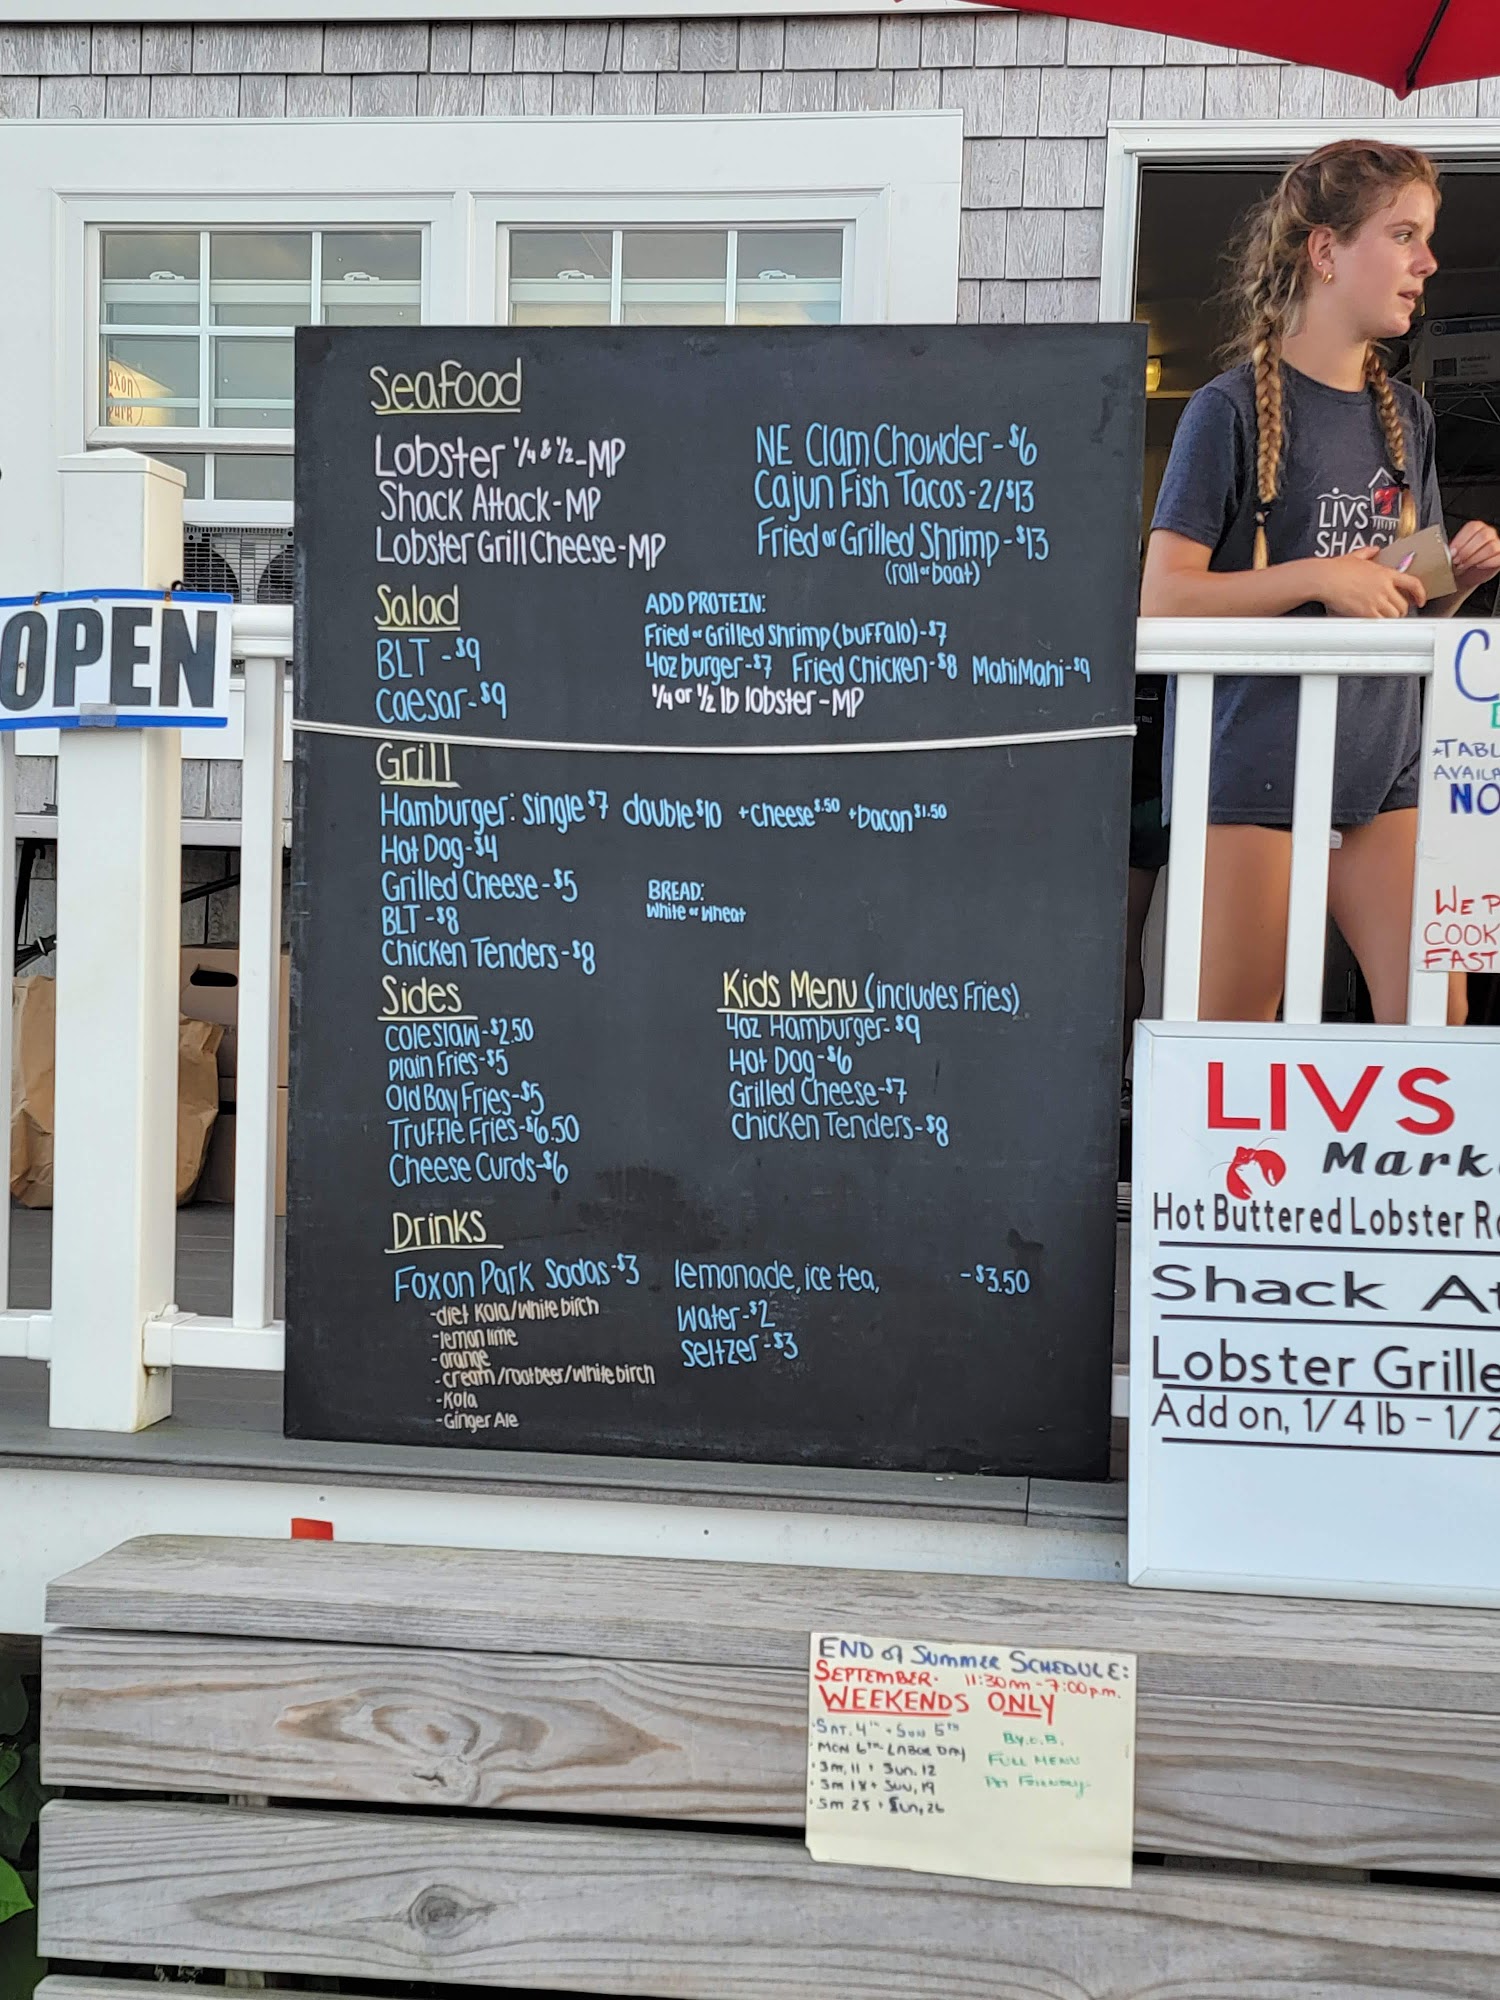 Seafood
Lobster 1/4 & 1/2-MP
Shack Attack-MP
Lobster Grill Cheese-MP
NE Clam Chowder-$6
Cajun Fish Tacos-2/$13
Fried or Grilled Shrimp-$13
(roll or boat)
Salad
BLT-$9
Caesar-$9
ADD PROTEIN:
Fried or Grilled Shrimp (buffalo)-$7
4oz burger-$7 Fried Chicken-$8 Mahi Mahi-$9
1/4 or 1/2 lb lobster-MP
Grill
Hamburger: Single $7 double $10 +cheese $.50 +bacon $1.50
Hot Dog-$4
Grilled Cheese-$5
BLT-$8
Chicken Tenders-$8
BREAD:
White or Wheat
Sides
Coleslaw-$2.50
Plain Fries-$5
Old Bay Fries-$5
Truffle Fries-$6.50
Cheese Curds-$6
Kids Menu (includes Fries)
4oz Hamburger-$9
Hot Dog-$6
Grilled Cheese-$7
Chicken Tenders-$8
Drinks
Foxon Park Sodas-$3
-diet Kola/white birch
-lemon lime
-orange
-cream/rootbeer/white birch
-Kola
-Ginger Ale
lemonade, ice tea, -$3.50
Water-$2
Seltzer-$3
OPEN
oxon
Park
LIVS
SHAC
C
*TABL
AVAILA
NO
WE P
COOK
FAST
LIVS
Mark
Hot Buttered Lobster Ro
Shack At
Lobster Grille
Add on, 1/4 lb - 1/2
END of SUMMER SCHEDULE:
SEPTEMBER. 11:30am - 7:00p.m.
WEEKENDS ONLY
SAT. 4th + SUN 5th
MON 6th LABOR DAY
11 + Sun. 12
18 + Sun, 19
25 + Sun, 26
B.Y.O.B.
FULL MENU
PET FRIENDLY